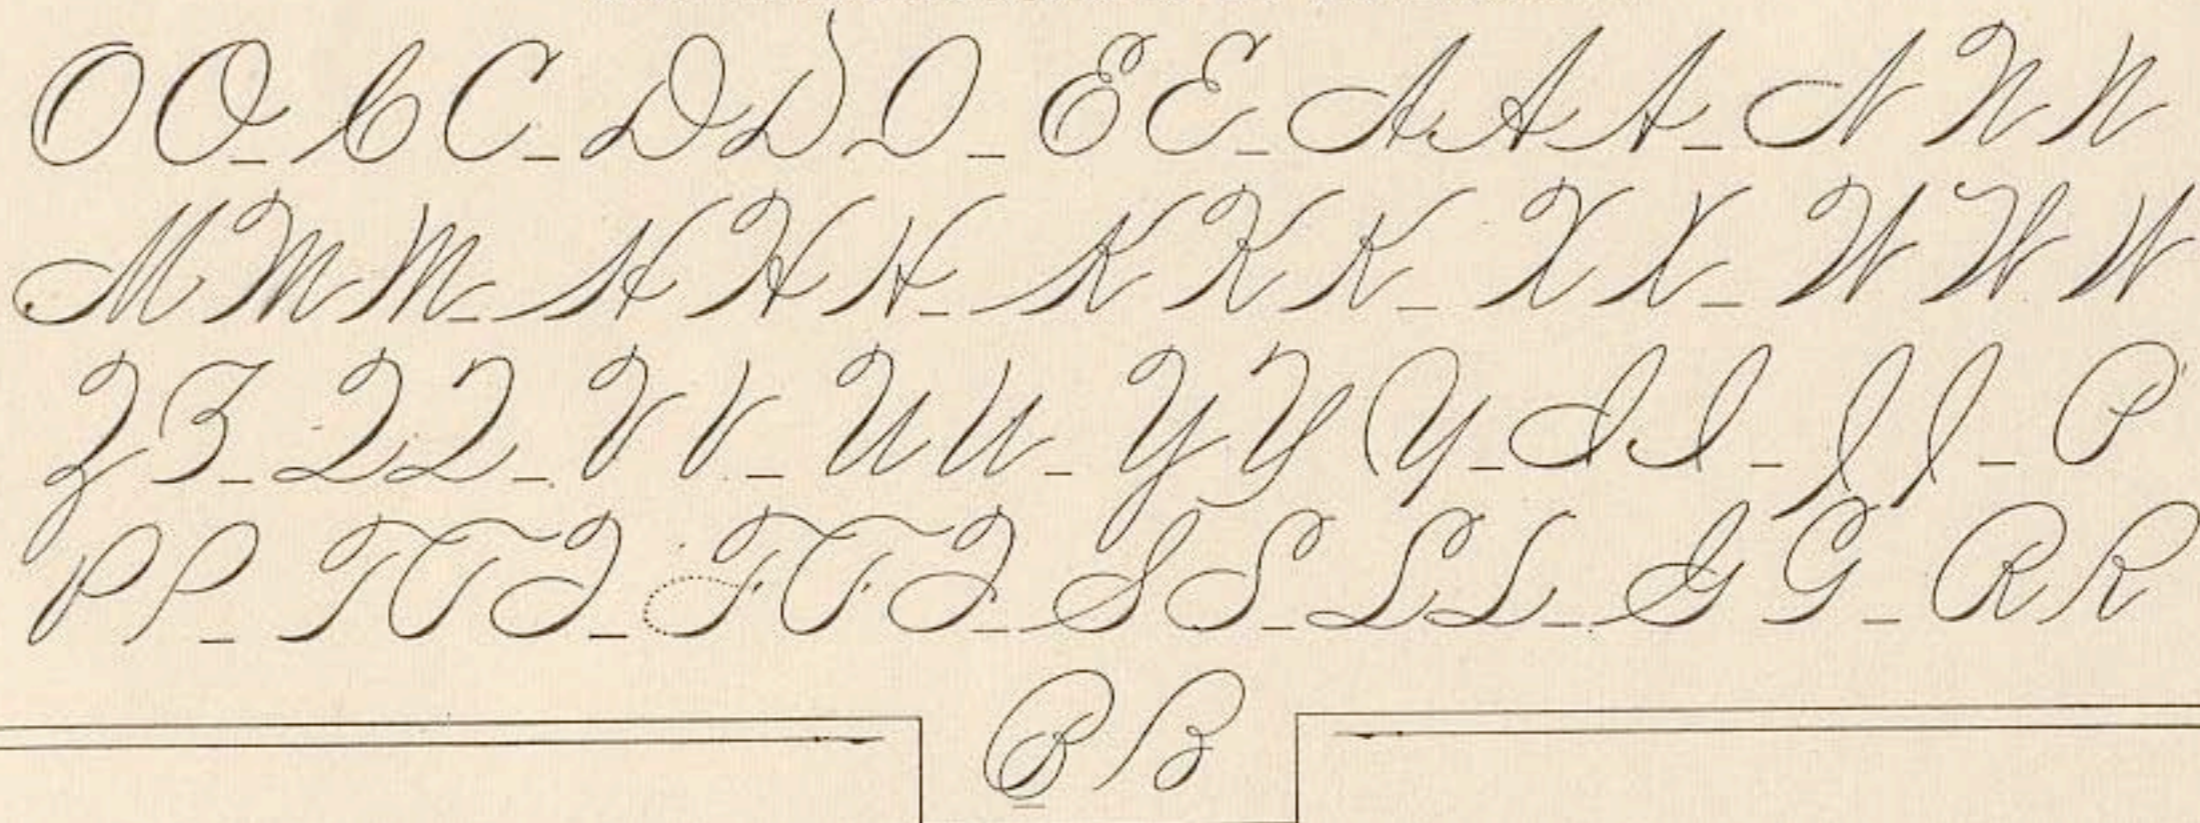 O O_ C C_ D D D_ E E_ A A A_ N N N
M M M_ H H H_ K K K_ X X_ W W W
Z Z_ Q Q_ V V_ U U_ Y Y Y_ I I_ J J_ P
P P_ T T T_ F F F_ S S_ L L_ G G_ R R
B B